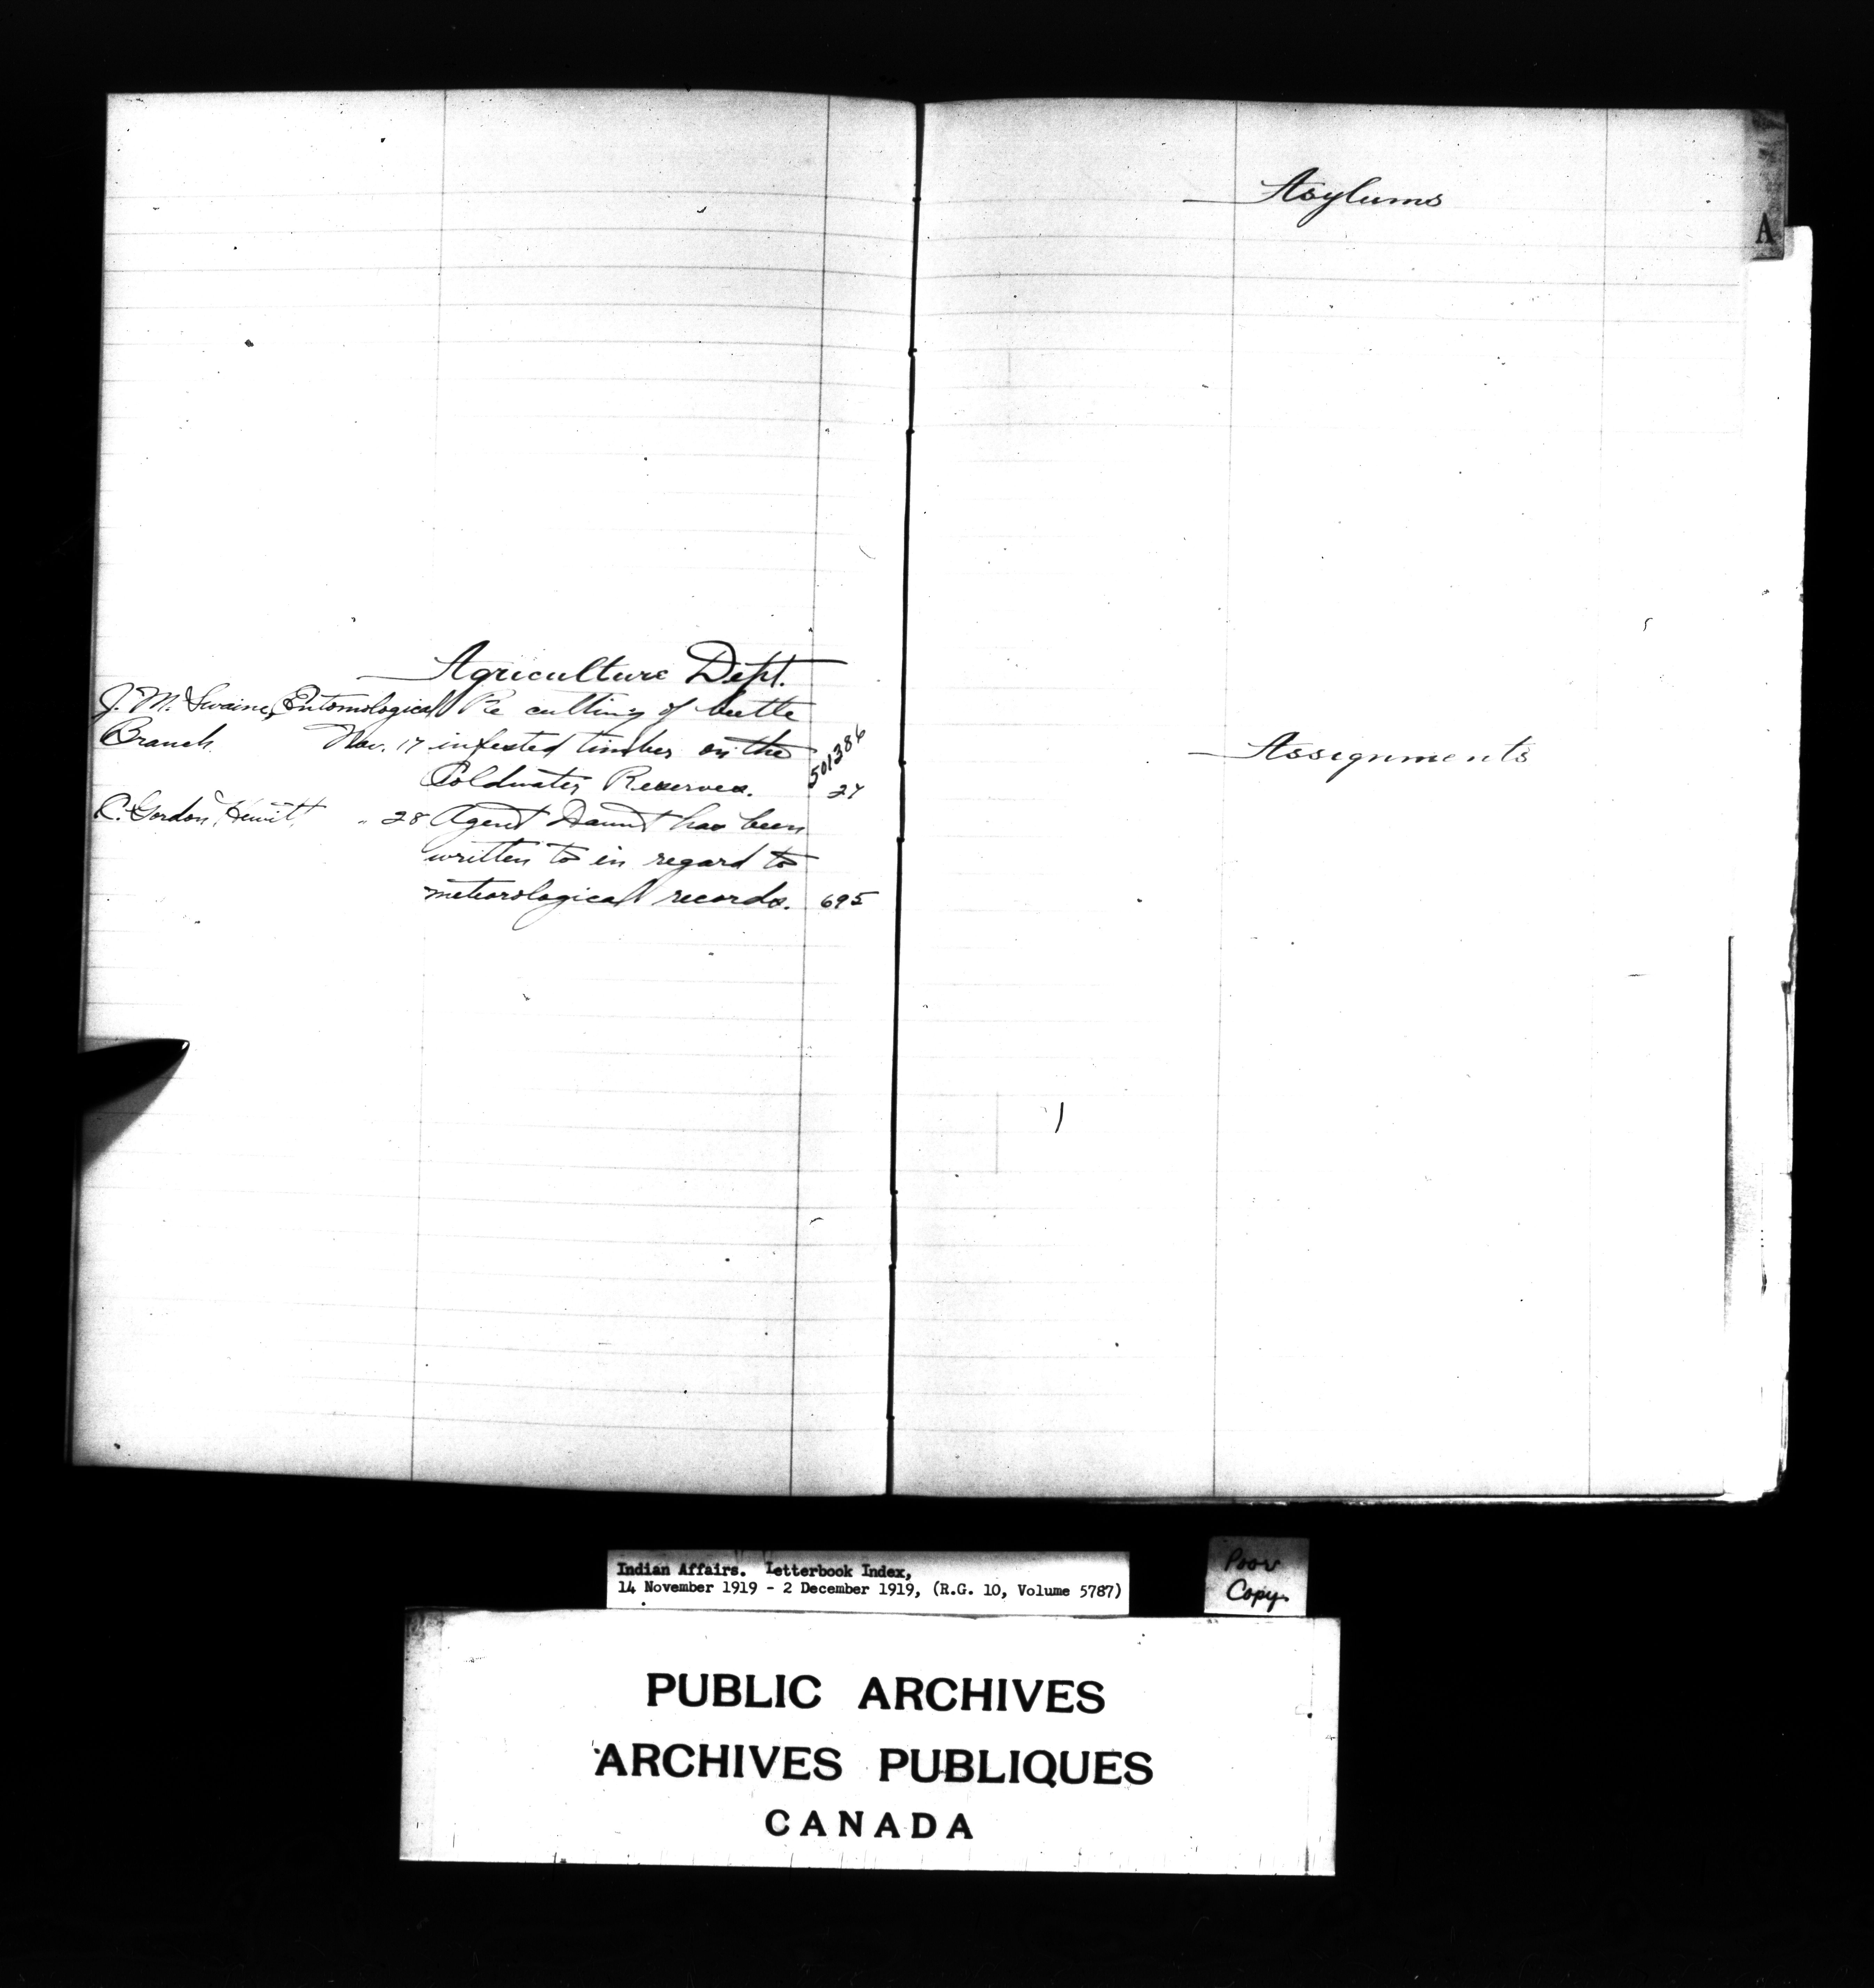 Agriculture Dept.
J. M. Swaine, Entomological Re cutting of beetle
Branch. Nov. 17 infested timber on the 501386
Coldwater Reserves. 27
C. Gordon Hewitt. " 28 Agent Daunt has been
written to in regard to
meteorological records. 695
Asylums
A
Assignments
Indian Affairs. Letterbook Index,
14 November 1919 - 2 December 1919, (R.G. 10, Volume 5787)
Poor
Copy.
PUBLIC ARCHIVES
ARCHIVES PUBLIQUES
CANADA